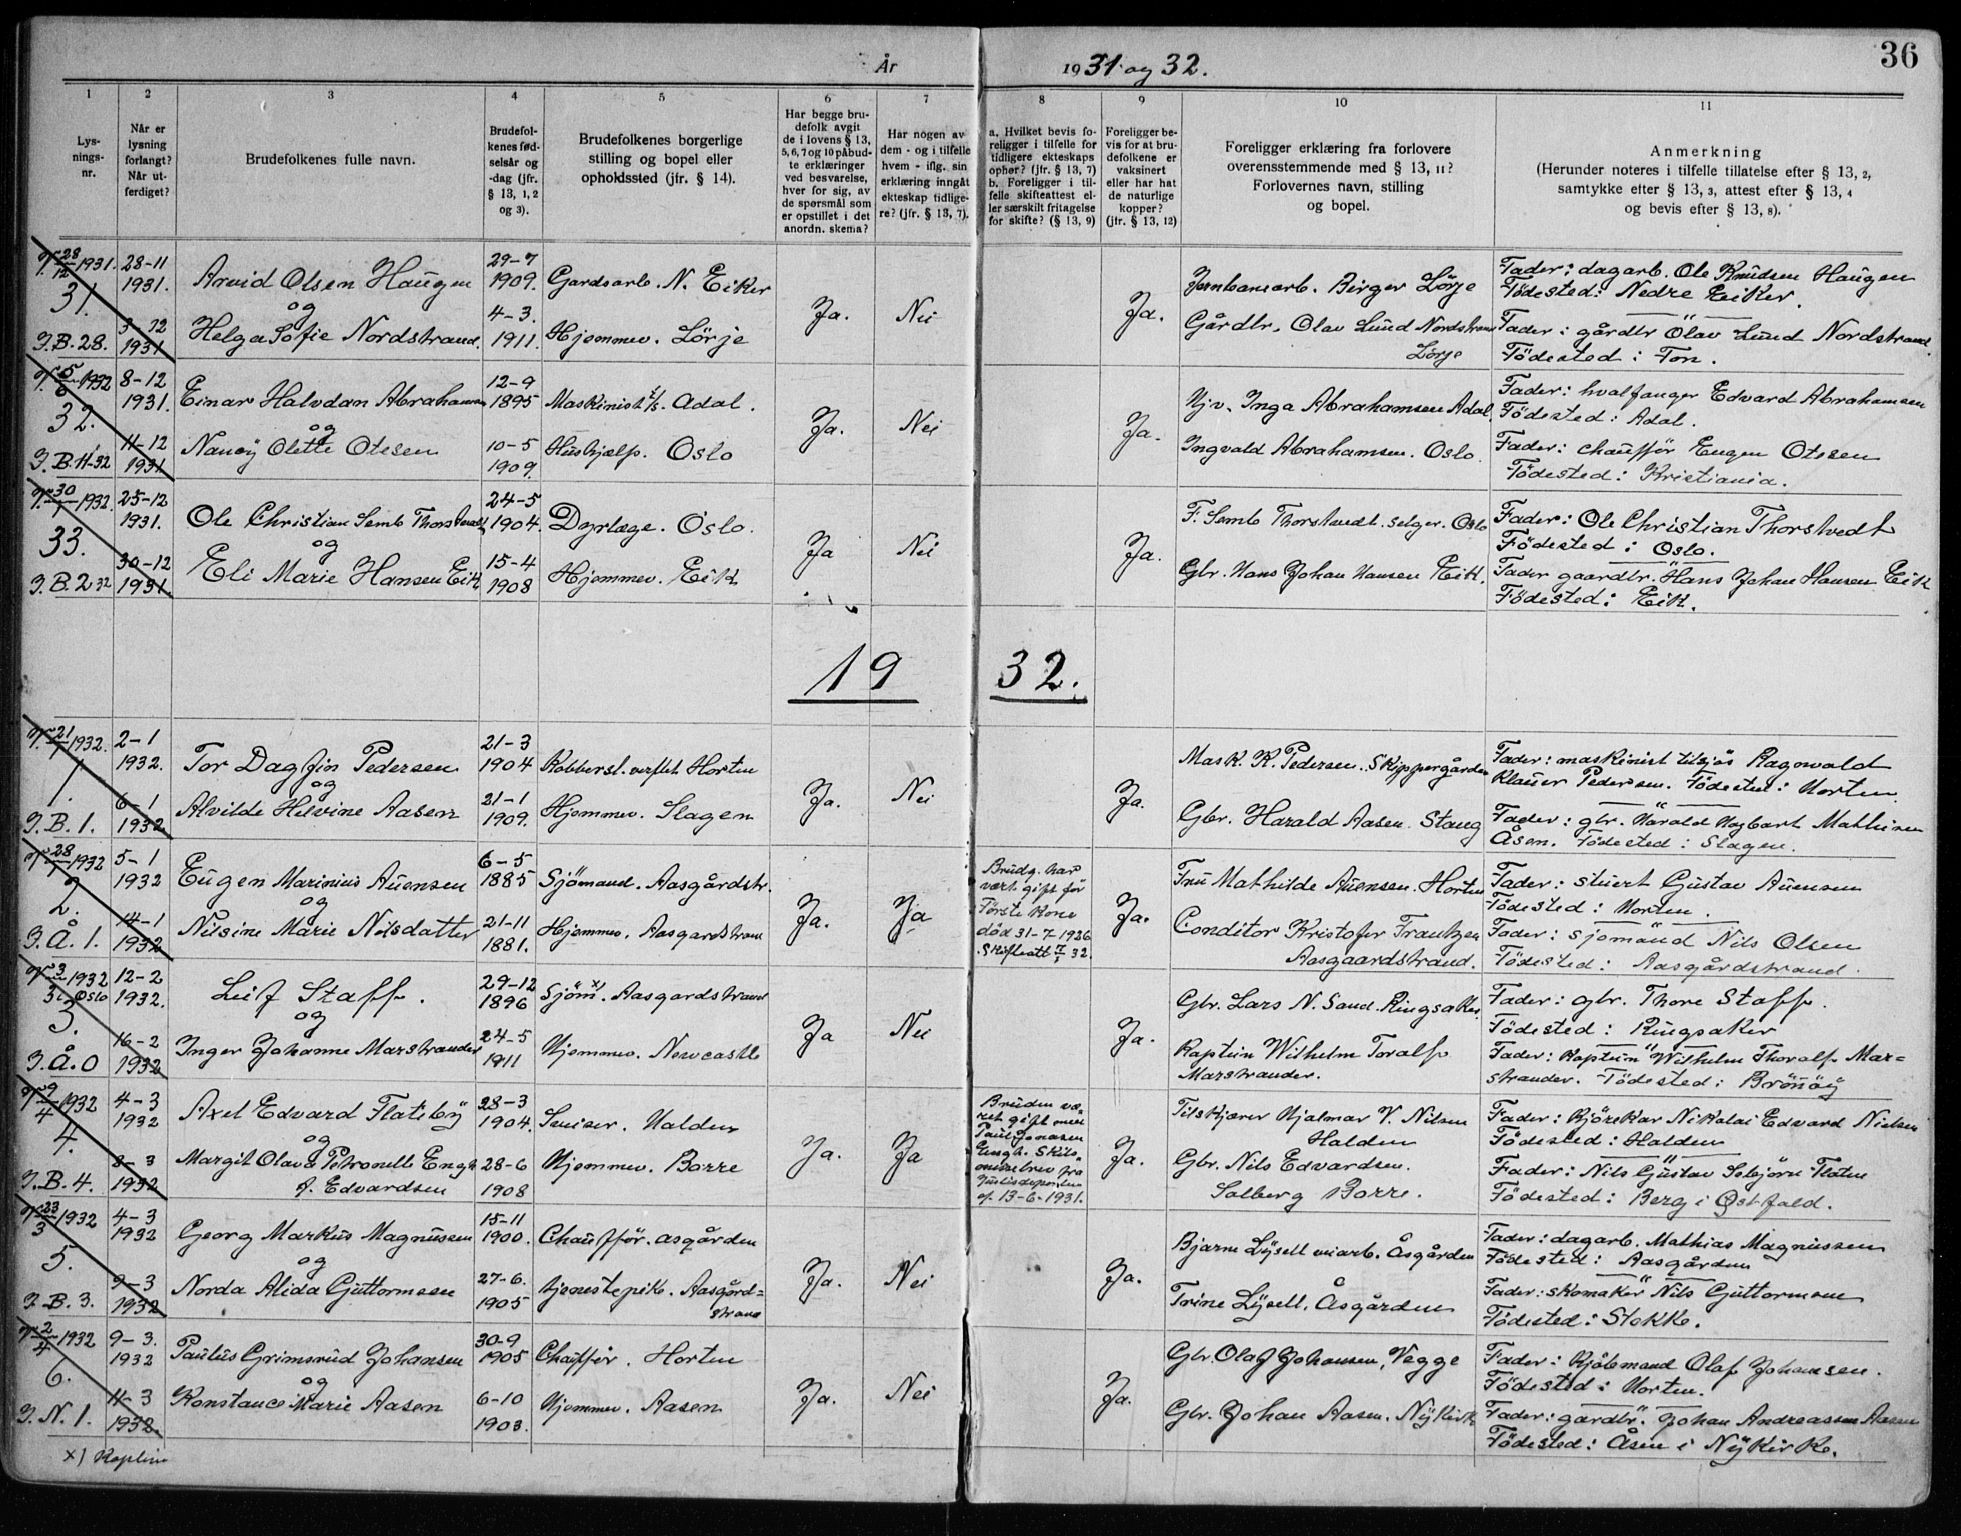 36
År 1931 og 32.
1 2 3 4 5 6 7 8 9 10 11
Lys-
nings-
nr.
Når er
lysning
forlangt?
Når ut-
ferdiget?
Brudefolkenes fulle navn.
Brudefol-
kenes fød-
selsår og
-dag (jfr.
§ 13, 1, 2
og 3).
Brudefolkenes borgerlige
stilling og bopel eller
opholdssted (jfr. § 14).
Har begge bru-
defolk avgit
de i lovens § 13,
5, 6, 7 og 10 påbud-
te erklæringer
ved besvarelse,
hver for sig, av
de spørsmål som
er opstillet i det
anordn. skema?
Har nogen av
dem - og i tilfelle
hvem - iflg. sin
erklæring inngåt
ekteskap tidlige-
re? (jfr. § 13, 7).
a. Hvilket bevis fo-
religger i tilfelle for
tidligere ekteskaps
ophør? (jfr. § 13, 7)
b. Foreligger i til-
felle skifteattest el-
ler særskilt fritagelse
for skifte? (§ 13, 9)
Foreligger be-
vis for at bru-
defolkene er
vaksinert
eller har hat
de naturlige
kopper?
(jfr. § 13, 12)
Foreligger erklæring fra forlovere
overensstemmende med § 13, 11?
Forlovernes navn, stilling
og bopel.
Anmerkning
(Herunder noteres i tilfelle tillatelse efter § 13, 2,
samtykke efter § 13, 3, attest efter § 13, 4
og bevis efter § 13, 8).
V. 28/12 1931.
31.
I.B. 28.
28-11
1931.
3-12
1931
Arvid Olsen Haugen
og
Helga Sofie Nordstrand.
29-7
1909.
4-3.
1911.
Gardsarb. N. Eiker
Hjemmev. Lörje
Ja.
Nei
Ja.
Jernbanearb. Birger Lörje
Gårdbr. Olav Lund Nordstrand
Lörje
Fader: dagarb. Ole Knudsen Haugen
Födested: Nedre Eiker.
Fader: gårdbr Olav Lund Nordstrand
Födested: Ton.
V. 5/6 1932
32.
I.B. 11-32
8-12
1931.
11-12
1931
Einar Halvdan Abrahamsen
og
Nancy Olette Olesen
12-9
1895
10-5
1909.
Maskinist t/s. Adal.
Hushjælp. Oslo
Ja.
Nei
Ja.
Hjv. Inga Abrahamsen Adal.
Ingvald Abrahamsen. Oslo
Fader: hvalfanger Edvard Abrahamsen
Födested: Adal.
Fader: chauffør Eugen Olesen
Födested: Kristiania.
V. 30/1 1932.
33.
I.B. 2 32
25-12
1931.
30-12
1931.
Ole Christian Semb Thorstvedt
og
Eli Marie Hansen Eik
24-5
1904.
15-4
1908
Dyrlæge. Oslo.
Hjemmev. Eik
Ja
Nei
Ja.
F. Semb Thorstvedt. selger. Oslo
Gbr. Hans Johan Hansen Eik.
Fader: Ole Christian Thorstvedt
Födested: Oslo.
Fader gaardbr. Hans Johan Hansen Eik
Födested: Eik.
1932.
V. 21/1 1932.
1.
I.B. 1.
2-1
1932.
6-1
1932
Tor Dagfin Pedersen
og
Alvilde Helvine Aasen
21-3
1904
21-1
1909.
Kobbersl. verftet Horten
Hjemmev. Slagen
Ja.
Nei
Ja.
Mask. R. Pedersen. Skippergården
Gbr. Harald Aasen. Stang
Fader: maskinist tilsjøs Ragnvald
Klauer Pedersen. Födested: Horten.
Fader: gbr. Harald Hagbart Mathisen
Åsen. Födested: Slagen.
V. 28/1 1932
2.
I.Å. 1.
5-1
1932
14-1
1932
Eugen Marinius Auensen
og
Nilsine Marie Nilsdatter
6-5
1885
21-11
1881.
Sjömand. Aasgårdstr.
Hjemmev. Aasgardstrand
Ja.
Ja
Brudg. har
vært gift før
Første kone
död 31-7 1926
Skifteatt 7/1 32.
Ja.
Fru Mathilde Auensen. Horten
Conditor Kristofer Frantzen
Aasgaardstrand.
Fader: stuert Gustav Auensen
Födested: Horten.
Fader: sjömand Nils Olsen
Födested: Aasgårdstrand.
V. 3/3 1932
i Oslo
3.
I.Å. 0
12-2
1932.
16-2
1932
Leif Staff.
og
Inger Johanne Marstrander
29-12
1896
24-5
1911
Sjöm x). Aasgardstrand
Hjemmev. Newcastle
Ja
Nei
Ja.
Gbr. Lars N. Sand. Ringsaker.
Kaptein Wilhelm Toralf
Marstrander.
Fader: gbr. Thore Staff.
Födested: Ringsaker
Fader: Kaptein Wilhelm Thoralf Mar=
strander. Födested: Brönöÿ
V. 9/4 1932
4.
I.B. 4.
4-3
1932
8-3
1932
Axel Edvard Flatebÿ
og
Margit Olava Petronelle Engh
f. Edvardsen
28-3
1904.
28-6
1908
Sveiser. Halden
Hjemmev. Borre
Ja.
Ja
Bruden væ=
ret gift med
Paul Jonasen
Engh. Skils=
missebrev fra
Justisdeparten
af 13-6-1931.
Ja.
Tilskjærer Hjalmar V. Nilsen
Halden
Gbr. Nils Edvardsen.
Solberg Borre.
Fader: Kjörekar Nikolai Edvard Nielsen
Födested: Halden
Fader: Nils Gustav Flaten
Födested: Berg i Østfold.
V. 23/3 1932
5.
I.B. 3.
4-3
1932
9-3
1932
Georg Markus Magnussen
og
Norda Alida Guttormsen
15-11
1900.
27-6.
1905
Chauffør. asgården
tjenestepike. Aasgård=
strand
Ja.
Nei
Ja.
Bjarne Lÿsell Åsgården
Trine Lÿsell, Åsgården
Fader: dagarb. Mathias Magnussen
Födested: Aasgården
Fader: skomaker Nils Guttormsen
Födested: Stokke.
V. 2/4 1932
6.
I.N. 1.
9-3.
1932
11-3
1932.
Paulus Grimsrud Johansen
og
Konstance Marie Aasen
30-9
1905
6-10
1903.
Chaufför. Horten
Hjemmev. Aasen
Ja.
Nei
Ja.
Gbr. Olaf Johansen, Vegge
Gbr. Johan Aasen. Nÿkirk
Fader: Kjöbmand Olaf Johansen.
Födested: Horten.
Fader: gardbr. Johan Andreassen Aasen
Födested: Åsen i Nÿkirke.
x) Kaptein